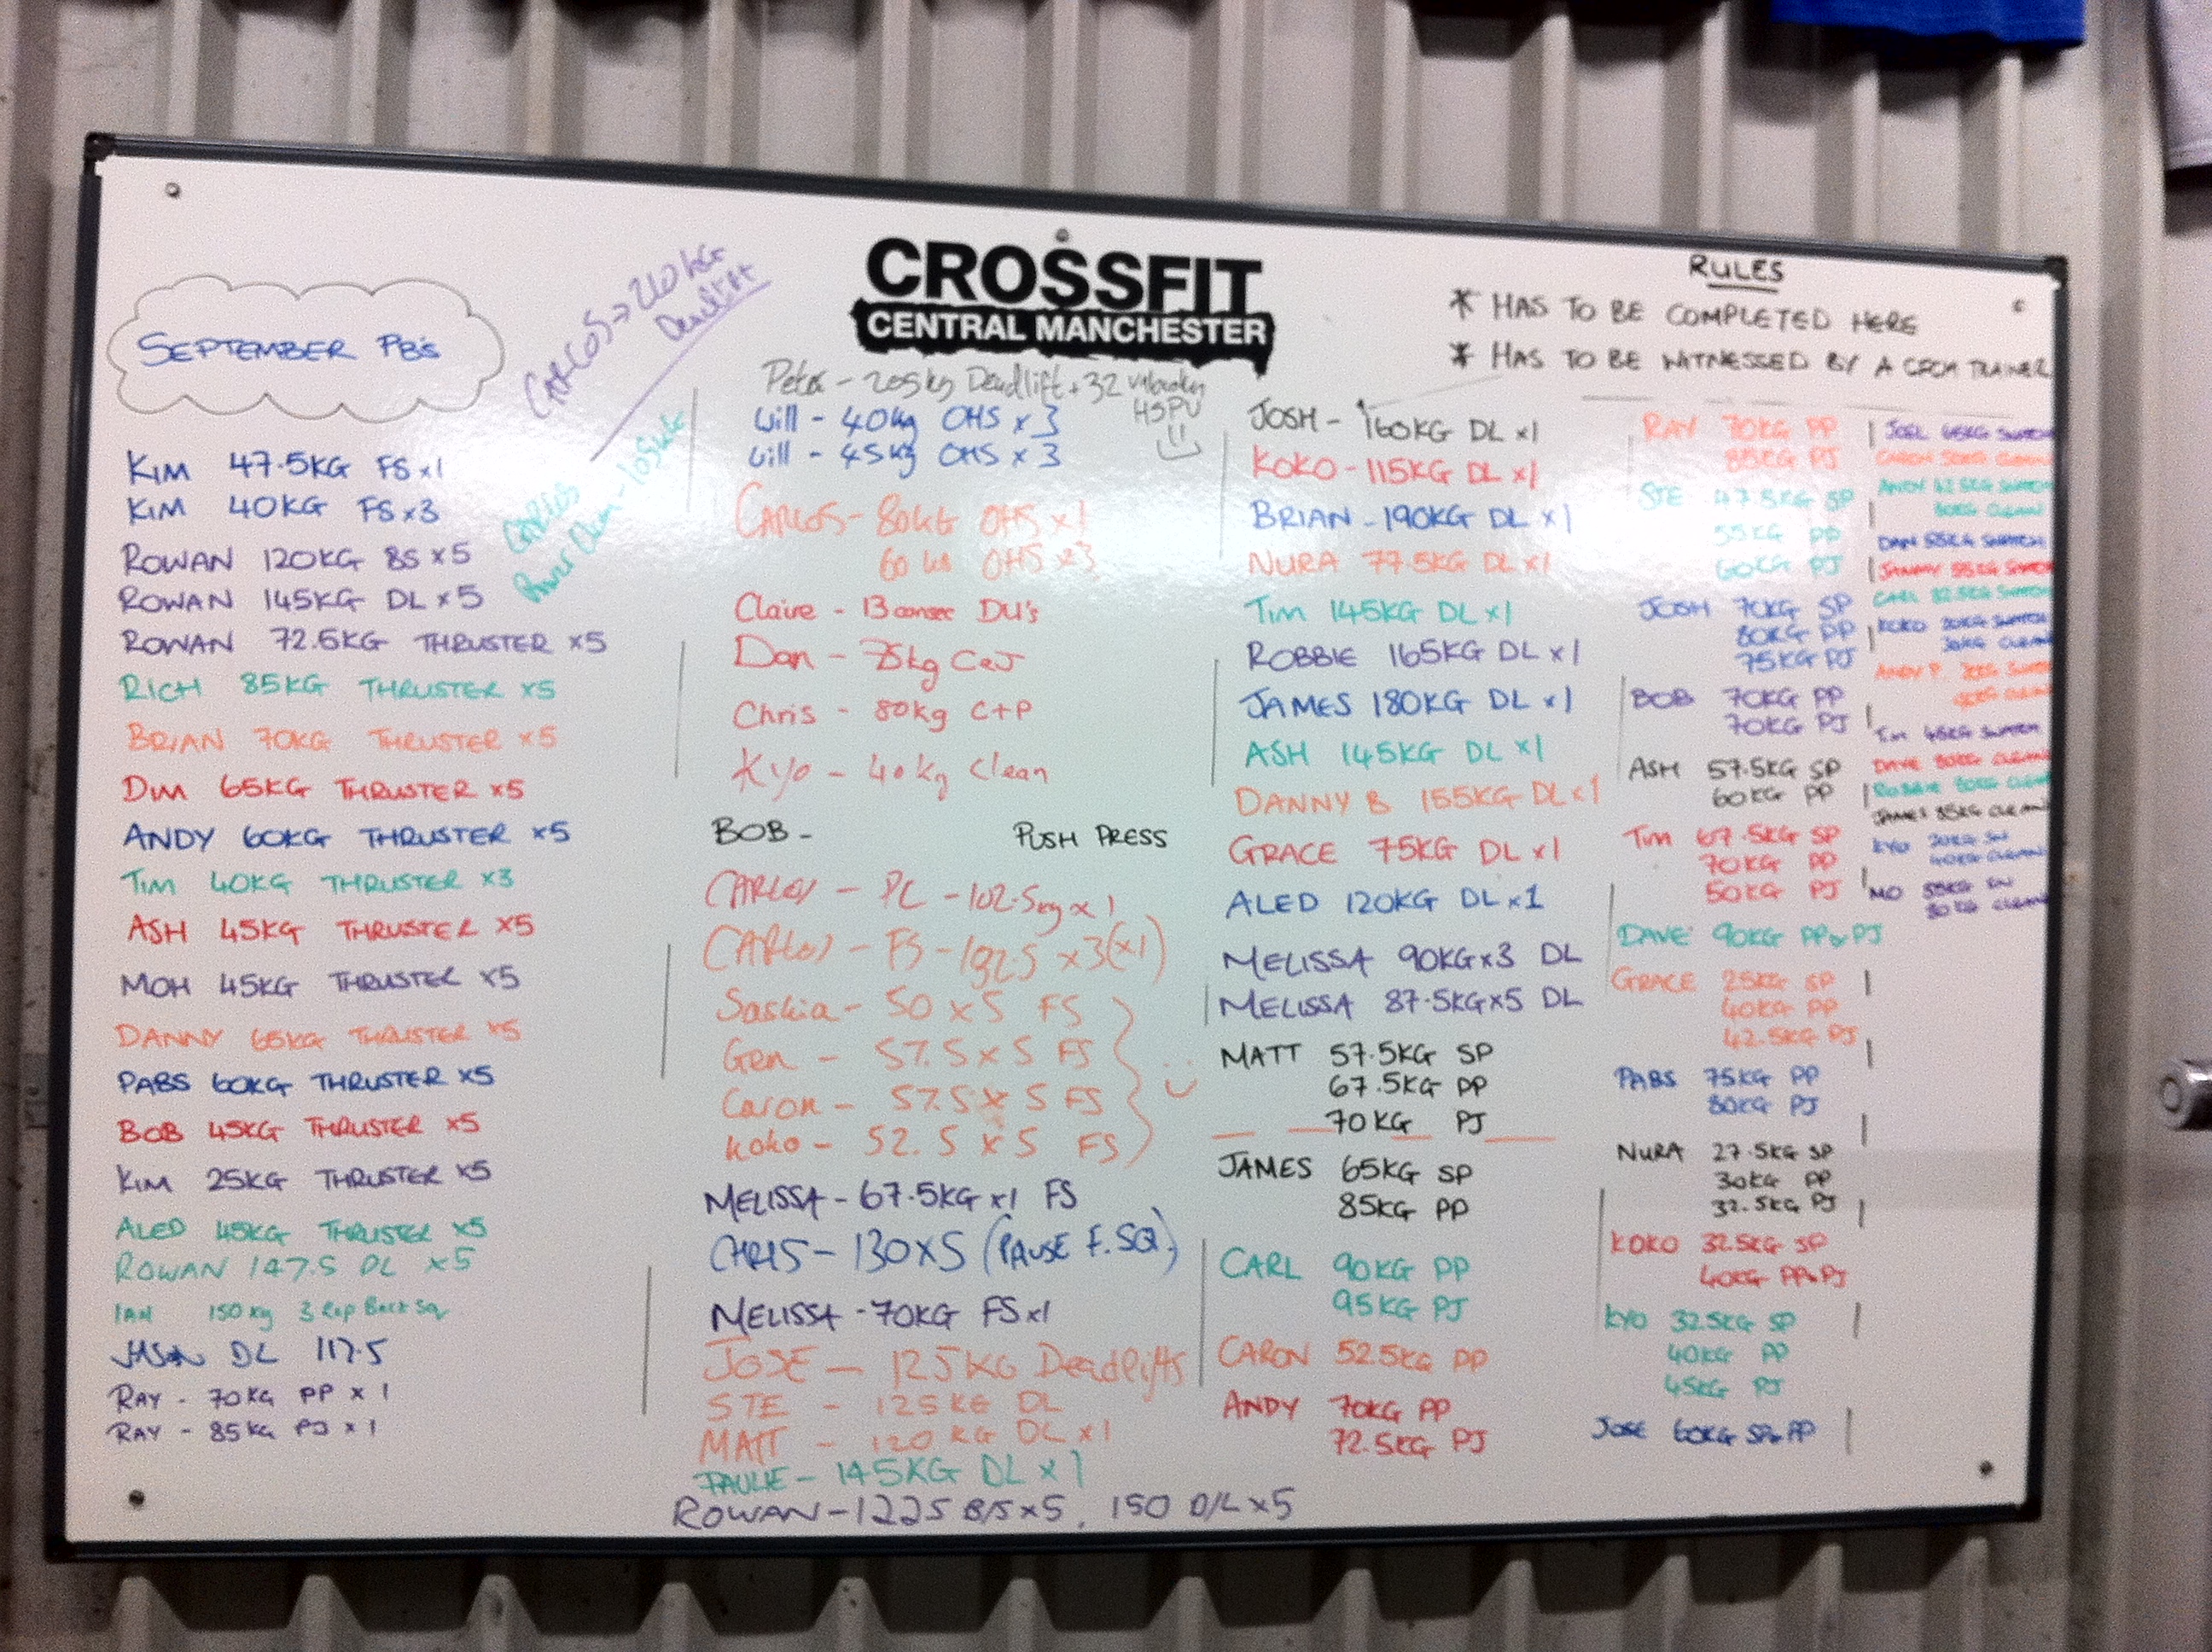 CROSSFIT
CENTRAL MANCHESTER
SEPTEMBER PB's
CARLOS → 210KG
Deadlift
CARLOS
Power Clean - 105KG
RULES
* HAS TO BE COMPLETED HERE
* HAS TO BE WITNESSED BY A CFCM TRAINER
KIM 47.5KG FS x1
KIM 40KG FS x3
ROWAN 120KG BS x5
ROWAN 145KG DL x5
ROWAN 72.5KG THRUSTER x5
RICH 85KG THRUSTER x5
BRIAN 70KG THRUSTER x5
DIM 65KG THRUSTER x5
ANDY 60KG THRUSTER x5
TIM 40KG THRUSTER x3
ASH 45KG THRUSTER x5
MOH 45KG THRUSTER x5
DANNY 65KG THRUSTER x5
PABS 60KG THRUSTER x5
BOB 45KG THRUSTER x5
KIM 25KG THRUSTER x5
ALED 45KG THRUSTER x5
ROWAN 147.5 DL x5
IAN 150kg 3 Rep Back Sq
JASON DL 117.5
RAY - 70KG PP x 1
RAY - 85KG PJ x 1
Peter - 205kg Deadlift + 32 unbroken
HSPU
Will - 40kg OHS x 3
Will - 45kg OHS x 3
CARLOS - 80KG OHS x1
60 KG OHS x3
Claire - 13 consec DU's
Dan - 75kg C&J
Chris - 80kg C+P
Kyo - 40kg Clean
BOB - PUSH PRESS
CARLOS - PC - 102.5kg x 1
CARLOS - FS - 132.5 x3(x1)
Saskia - 50 x 5 FS
Gen - 57.5 x 5 FS
Caron - 57.5 x 5 FS
Koko - 52.5 x 5 FS
MELISSA - 67.5KG x1 FS
CHRIS - 130x5 (PAUSE F.SQ.)
MELISSA - 70KG FS x1
JOSE - 125KG Deadlifts
STE - 125KG DL
MATT - 120KG DL x1
PAULIE - 145KG DL x 1
ROWAN - 122.5 B/S x5, 150 D/L x5
JOSH - 160KG DL x1
KOKO - 115KG DL x1
BRIAN - 190KG DL x1
NURA 77.5KG DL x1
TIM 145KG DL x1
ROBBIE 165KG DL x1
JAMES 180KG DL x1
ASH 145KG DL x1
DANNY B 155KG DL x1
GRACE 75KG DL x1
ALED 120KG DL x1
MELISSA 90KG x3 DL
MELISSA 87.5KG x5 DL
MATT 57.5KG SP
67.5KG PP
70KG PJ
JAMES 65KG SP
85KG PP
CARL 90KG PP
95KG PJ
CARON 52.5KG PP
ANDY 70KG PP
72.5KG PJ
RAY 70KG PP
85KG PJ
STE 47.5KG SP
55KG PP
60KG PJ
JOSH 70KG SP
80KG PP
75KG PJ
BOB 70KG PP
70KG PJ
ASH 57.5KG SP
60KG PP
TIM 67.5KG SP
70KG PP
50KG PJ
DAVE 90KG PP & PJ
GRACE 25KG SP
40KG PP
42.5KG PJ
PABS 75KG PP
80KG PJ
NURA 27.5KG SP
30KG PP
32.5KG PJ
KOKO 32.5KG SP
40KG PP & PJ
KYO 32.5KG SP
40KG PP
45KG PJ
JOSE 60KG SP & PP
JOEL 65KG SNATCH
CARON CLEAN
ANDY 42.5KG SNATCH
CLEAN
DAN 55KG SNATCH
SNATCH
CARL SNATCH
KOKO SNATCH
CLEAN
ANDY P.
TIM 45KG SNATCH
DAVE 80KG CLEAN
ROBBIE 80KG CLEAN
JAMES 85KG CLEAN
KYO
40KG CLEAN
MO 55KG SN
80KG CLEAN